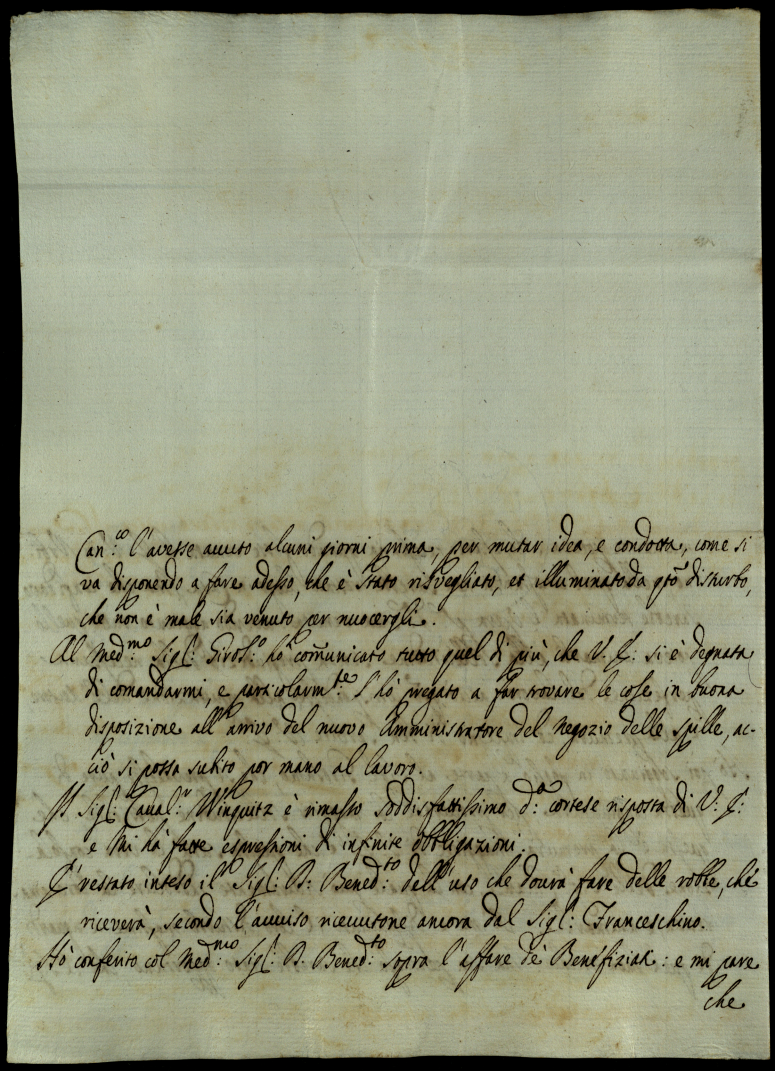 Can.co l'avesse avuto alcuni giorni prima, per mutar idea, e condotta, come si
va disponendo a fare adesso, che è stato risvegliato, et illuminato da qto disturbo,
che non è male sia venuto per nuocergli.
Al Med.mo Sig.l: Girol.o hò comunicato tutto quel di più, che V. E. si è degnata
di comandarmi, e particolarm.te l'hò pregato a far trovare le cose in buona
disposizione all'arrivo del nuovo Amministratore del Negozio delle spille, ac-
ciò si possa subito por mano al lavoro.
Il Sig.l: Caval.r Winquitz è rimasto soddisfattissimo d.a cortese risposta di V. E:
e mi hà fatte espressioni di infinite obbligazioni.
E' restato inteso il Sig.l: B: Bened.to dell'uso che dovrà fare delle robbe, che
riceverà, secondo l'avviso ricevutone ancora dal Sig.l: Franceschino.
Hò conferito col Med.mo Sig.l: B. Bened.to sopra l'affare de' Benefiziati: e mi pare
che